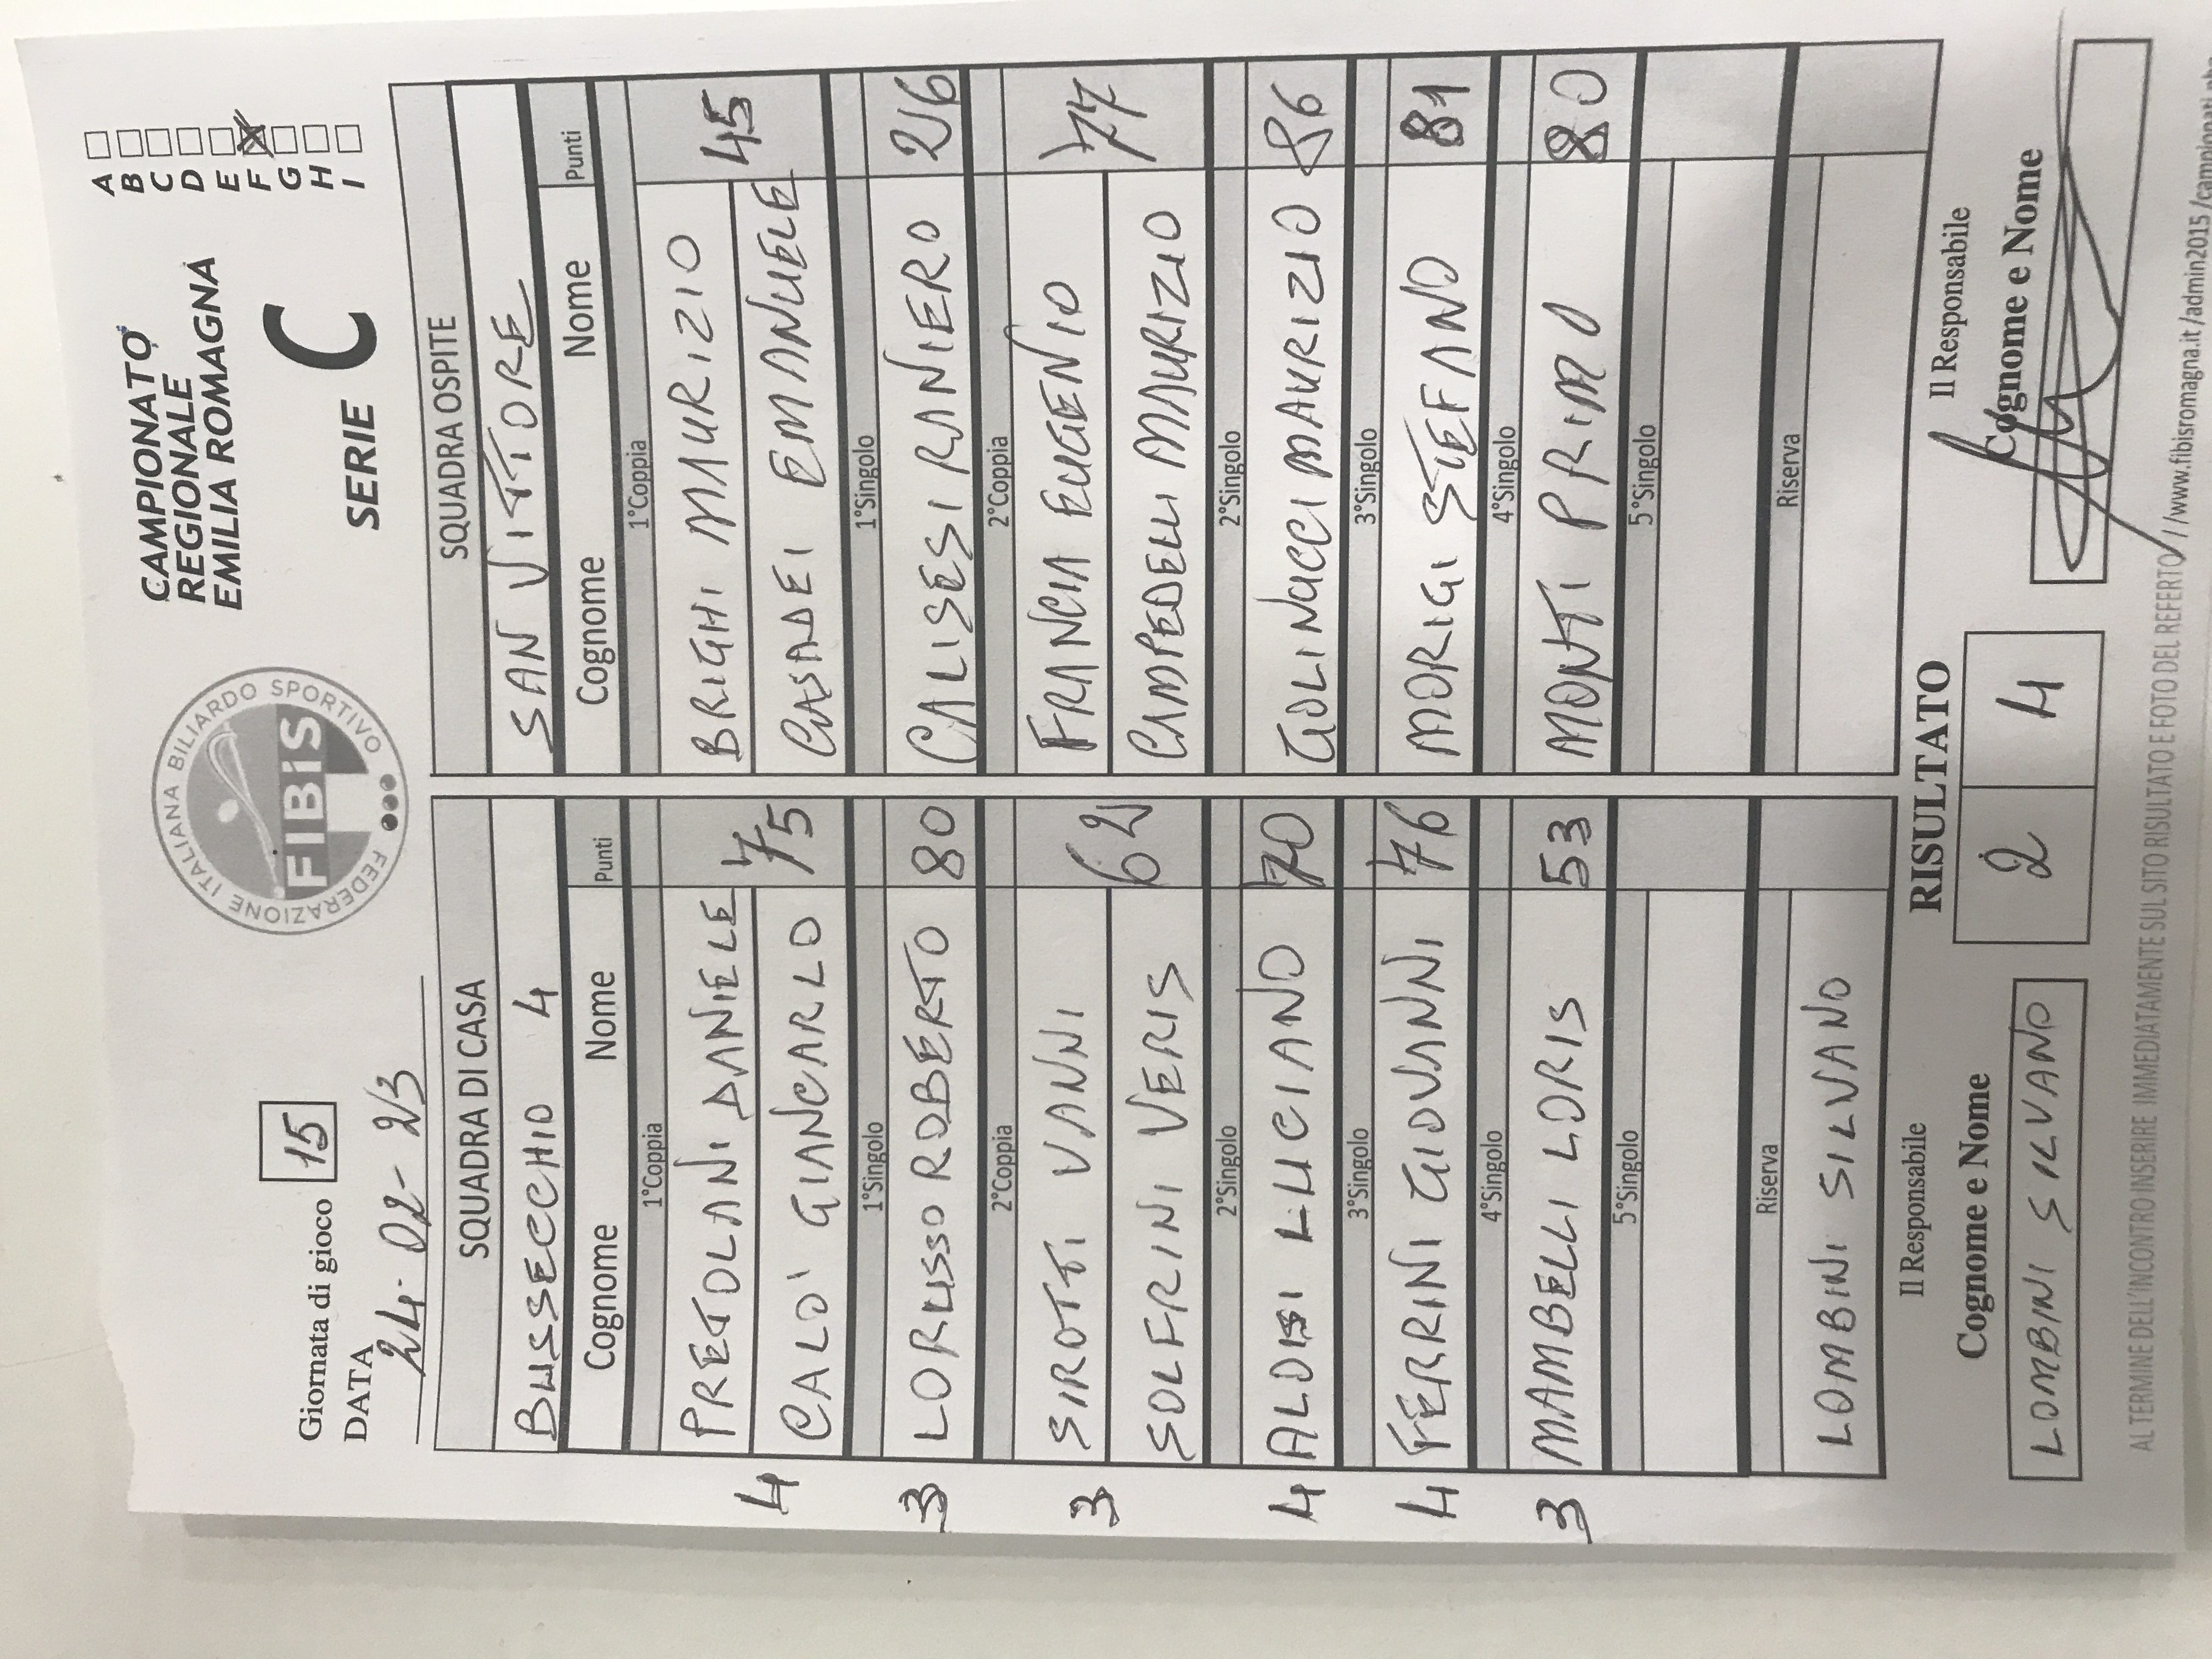 Giornata di gioco 15
DATA
24-02-23
FEDERAZIONE ITALIANA BILIARDO SPORTIVO
FIBiS
CAMPIONATO
REGIONALE
EMILIA ROMAGNA
SERIE C
A
B
C
D
E
F
G
H
I
SQUADRA DI CASA
BUSSECCHIO 4
Cognome Nome Punti
1°Coppia
PRETOLANI DANIELE
4 CALDI GIANCARLO 75
1°Singolo
3 LORUSSO ROBERTO 80
2°Coppia
SIROTTI VANNI
3 62
SOLFRINI VERIS
2°Singolo
4 LUCIANO 70
3°Singolo
4 FERRINI GIOVANNI 76
4°Singolo
3 MAMBELLI LORIS 53
5°Singolo
Riserva
LOMBINI SILVANO
SQUADRA OSPITE
SAN VITTORE
Cognome Nome Punti
1°Coppia
BRIGHI MAURIZIO
45
CASADEI EMANUELE
1°Singolo
CALISESI RANIERO 26
2°Coppia
FRANCIA EUGENIO
77
CAMPEDELLI MAURIZIO
2°Singolo
GOLINUCCI MAURIZIO 86
3°Singolo
MORIGI STEFANO 81
4°Singolo
MONTI PRIMO 80
5°Singolo
Riserva
Il Responsabile
Cognome e Nome
LOMBINI SILVANO
RISULTATO
2 4
Il Responsabile
Cognome e Nome
AL TERMINE DELL'INCONTRO INSERIRE IMMEDIATAMENTE SUL SITO RISULTATO E FOTO DEL REFERTO //www.fibisromagna.it/admin2015/campionati.php